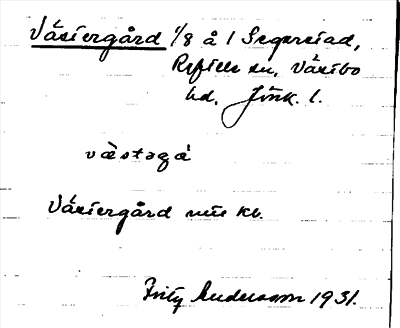 Västergård 1/8 å 1 Segerstad,
Reftele sn, Västbo
hd, Jönk. l.
västəgá
Västergård
Fritz Andersson 1931.